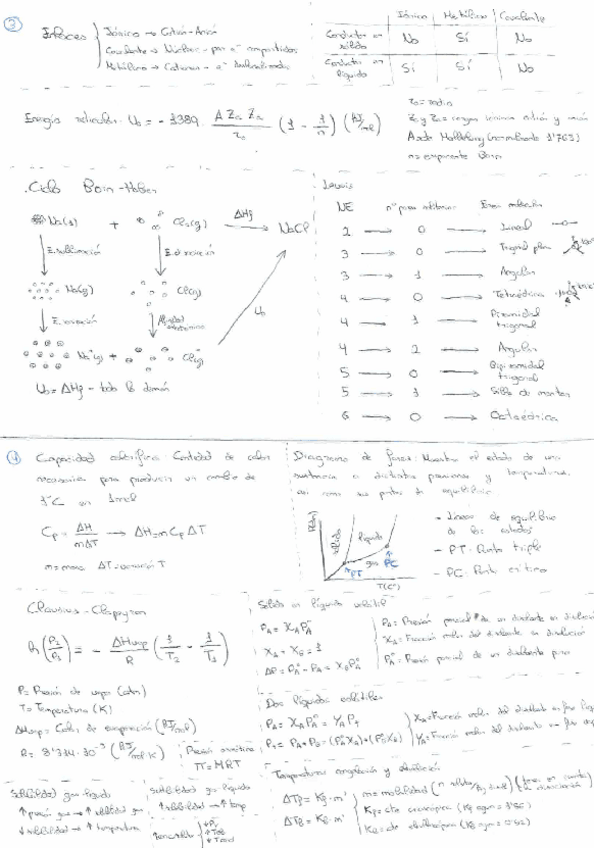 3
Enlaces
Iónico → Catión-Anión
Covalente → Núcleos - par e⁻ compartidos
Metálico → Cationes - e⁻ deslocalizados
Iónico Metálico Covalente
Conductor en sólido No Sí No
Conductor en líquido Sí Sí No
Energía reticular: U₀ = -1389 · A Zc Za / r₀ (1 - 1/n) (kJ/mol)
r₀ = radio
Zc y Za = cargas iónicas catión y anión
n = exponente Born
Ciclo Born-Haber
Na(s) + Cl₂(g) → ΔHf NaCl
E. sublimación
Na(g) Cl(g)
E. ionización
Afinidad electrónica
Na⁺(g) + Cl⁻(g)
U₀
U₀ = ΔHf - todo lo demás
Lewis
NE
2 → 0 → Lineal
3 → 0 → Trigonal plana
3 → 1 → Angular
4 → 0 → Tetraédrica
4 → 1 → Piramidal trigonal
4 → 2 → Angular
5 → 0 → Bipiramidal trigonal
5 → 1 → de montar
6 → 0 → Octaédrica
4
Capacidad calorífica: Cantidad de calor
necesaria para producir un cambio de
1°C en 1 mol
Cp = ΔH / mΔT → ΔH = m Cp ΔT
m = masa ΔT = variación T
Diagrama de fases: Muestra el estado de una
sustancia a distintas presiones y temperaturas,
así como sus puntos de equilibrio
sólido
líquido
gas
PT
PC
T(°C)
- Líneas de equilibrio
de los estados
- PT: Punto triple
- PC: Punto crítico
Clausius-Clapeyron
ln(P₂/P₁) = - ΔHvap/R (1/T₂ - 1/T₁)
P = Presión de vapor (atm)
T = Temperatura (K)
ΔHvap = Calor de vaporización (kJ/mol)
R = 8'314·10⁻³ (kJ/mol·K)
Presión osmótica
π = MRT
Sólido en líquido volátil
P_A = X_A P_A°
X_A + X_B = 1
ΔP = P_A° - P_A = X_B P_A°
P_A = Presión parcial de un disolvente en disolución
X_A = Fracción molar del disolvente en disolución
P_A° = Presión parcial de un disolvente puro
Dos líquidos volátiles
P_A = X_A P_A° = Y_A P_T
P_T = P_A + P_B = (P_A° X_A) + (P_B° X_B)
X_A = Fracción molar del disolvente en fase líquida
Y_A = Fracción molar del disolvente en fase
Temperaturas congelación y ebullición
ΔTc = Kc · m'
ΔTe = Ke · m'
m = molalidad
Kc = cte crioscópica (Kc agua = 1'86)
Ke = cte ebulloscópica (Ke agua = 0'52)
Solubilidad gas-líquido
↑ presión gas → ↑ solubilidad gas
↓ solubilidad → ↑ temperatura
Solubilidad
↑ solubilidad → ↑ temp